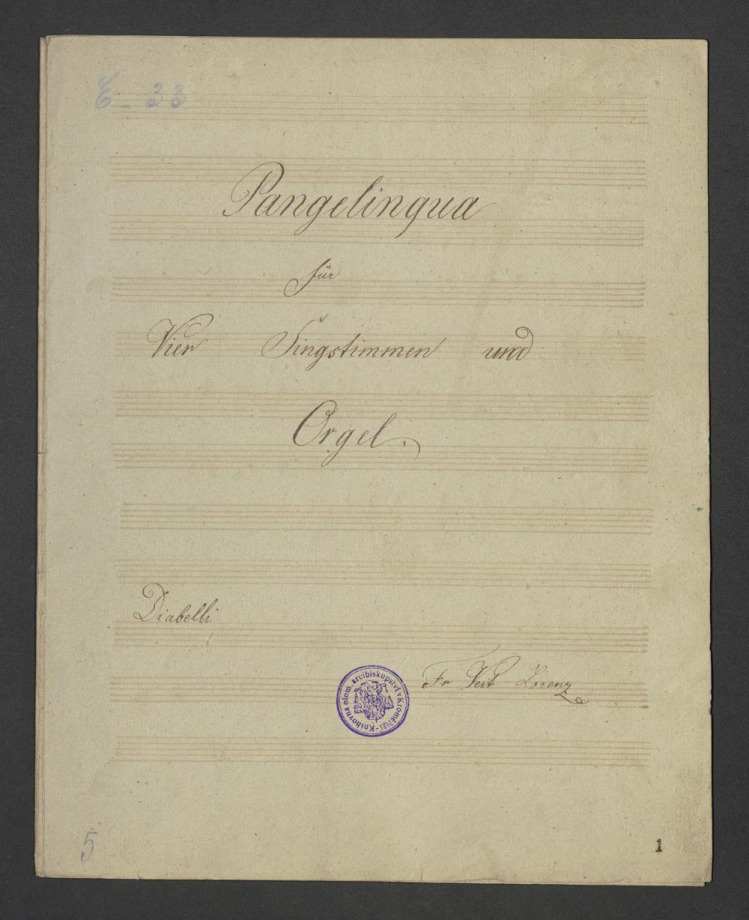 E_ 33
Pangelingua
für
Vier Singstimmen und
Orgel.
Diabelli
Fr Veit Lorenz
Knihovna olom. arcibiskupství v Kroměříži
5
1